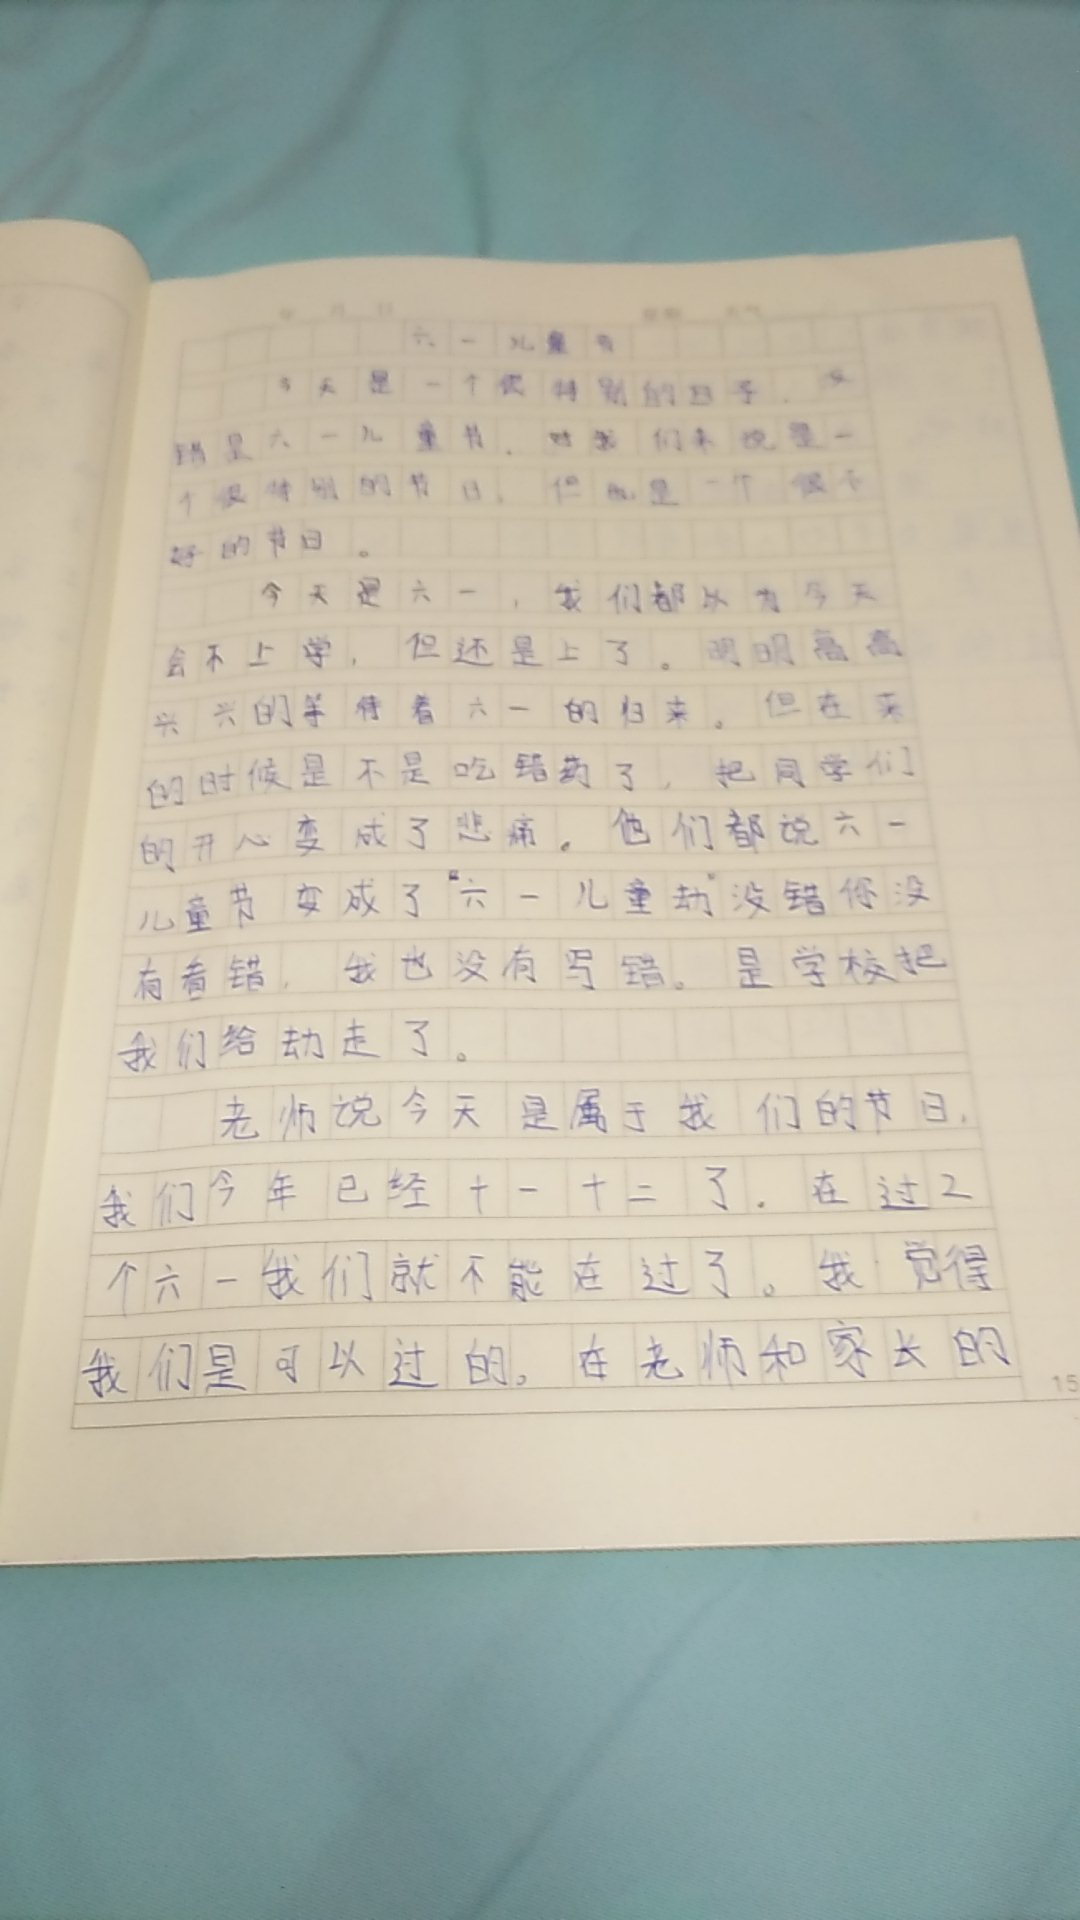 六一儿童节
今天是一个很特别的日子，没
错是六一儿童节，对我们来说是一
个很特别的节日，但也是一个很不
好的节日。
今天是六一，我们都以为今天
会不上学，但还是上了。明明高高
兴兴的等待着六一的归来。但在来
的时候是不是吃错药了，把同学们
的开心变成了悲痛。他们都说六一
儿童节变成了“六一儿童劫”没错你没
有看错，我也没有写错。是学校把
我们给劫走了。
老师说今天是属于我们的节日，
我们今年已经十一十二了．在过2
个六一我们就不能在过了。我觉得
我们是可以过的。在老师和家长的
15